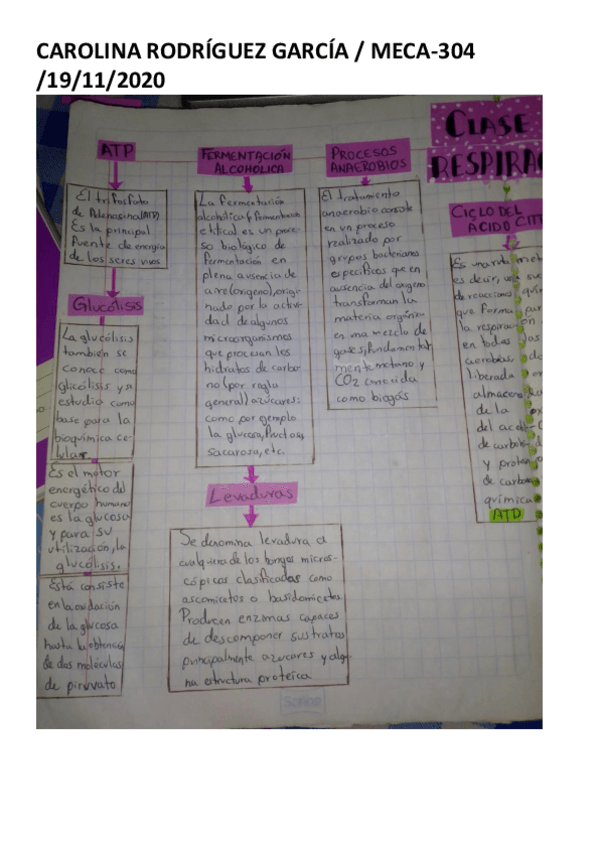 CAROLINA RODRÍGUEZ GARCÍA / MECA-304
/19/11/2020
CLASE
RESPIRA
ATP
El trifosfato
de Adenosina(ATP)
Es la principal
fuente de energia
de los seres vivos
GLUCÓLISIS
La glucólisis
también se
conoce como
glicólisis y se
estudia como
base para la
bioquímica ce-
lular.
Es el motor
energético del
cuerpo humano
es la glucosa
y para su
utilización, la
glucolisis.
Está consiste
en la oxidación
de la glucosa
hasta la obtención
de dos moleculas
de piruvato
FERMENTACIÓN
ALCOHOLICA
La fermentación
alcoholica y fermentación
etilica es un proce-
so biologico de
fermentación en
plena ausencia de
aire(oxigeno), origi-
nado por la activi-
dad de algunos
microorganismos
que procesan los
hidratos de carbo-
no (por regla
general) azucares:
como por ejemplo
la glucosa, fructosa,
sacarosa, etc.
Levaduras
Se denomina levadura a
cualquiera de los hongos micros-
cópicos clasificados como
ascomicetos o basidomicetes
Producen enzimas capaces
de descomponer sustratos
principalmente azucares y algu-
na estructura protéica
PROCESOS
ANAEROBIOS
El tratamiento
anaerobio consiste
en un proceso
realizado por
grupos bacterianos
especificos que en
ausencia del oxigeno
transforman la
materia orgánica
en una mezcla de
gases, fundamental
mente metano y
CO2 conocida
como biogás
CICLO DEL
ÁCIDO CIT
Es una
es decir, una suc
de reacciones quím
que forma par
la respiración
en todas las
aerobias
liberada
almacenada
de la
del acetil-C
de carbohid
y protein
de carbono
química
ATP
Scribe